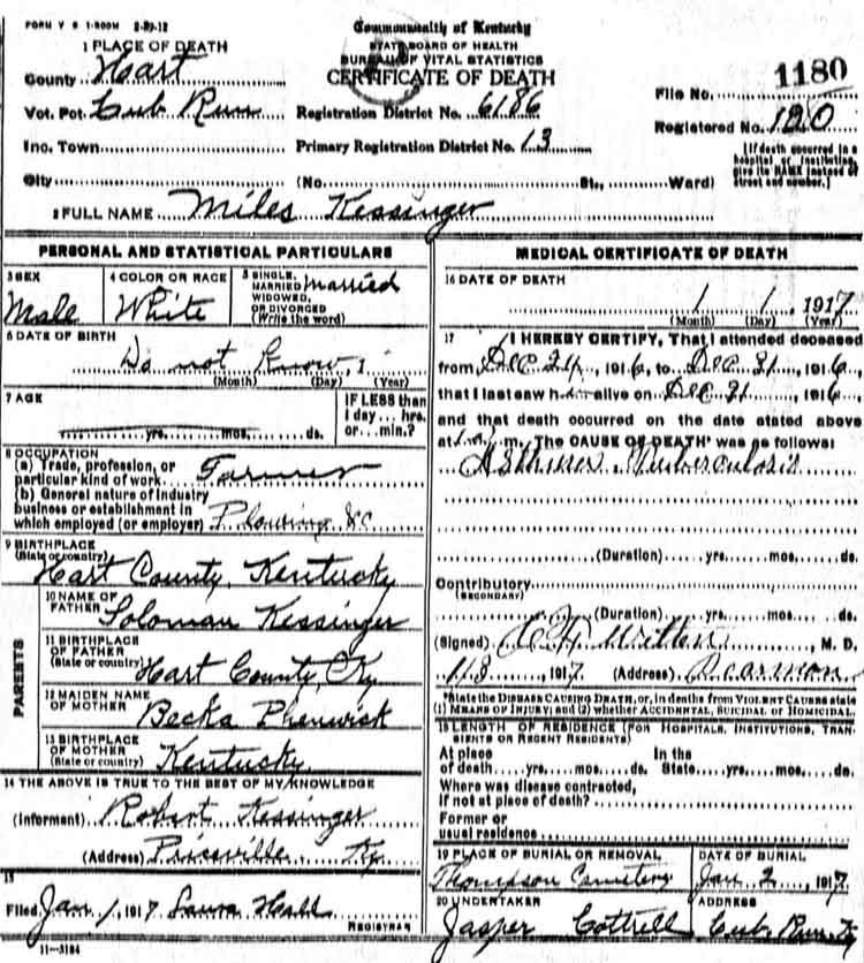 FORM V S 1-500M 2-29-12
Commonwealth of Kentucky
STATE BOARD OF HEALTH
BUREAU OF VITAL STATISTICS
CERTIFICATE OF DEATH
1 PLACE OF DEATH
County Hart
Vot. Pct. Cub Run
Inc. Town
City
Registration District No. 6186
Primary Registration District No. 13
(No. St., Ward)
File No. 1180
Registered No. 120
[If death occurred in a
hospital or institution,
give its NAME instead of
street and number.]
2 FULL NAME Miles Kessinger
PERSONAL AND STATISTICAL PARTICULARS
3 SEX
Male
4 COLOR OR RACE
White
5 SINGLE,
MARRIED Married
WIDOWED,
OR DIVORCED
(Write the word)
6 DATE OF BIRTH
Do not Know, 1
(Month) (Day) (Year)
7 AGE
yrs. mos. ds.
IF LESS than
1 day... hrs.
or... min.?
8 OCCUPATION
(a) Trade, profession, or
particular kind of work Farmer
(b) General nature of industry
business or establishment in
which employed (or employer) Plowing &c
9 BIRTHPLACE
(State or country)
Hart County, Kentucky
PARENTS
10 NAME OF
FATHER Soloman Kessinger
11 BIRTHPLACE
OF FATHER
(State or country) Hart County, Ky
12 MAIDEN NAME
OF MOTHER
Becka Phenwick
13 BIRTHPLACE
OF MOTHER
(State or country) Kentucky
14 THE ABOVE IS TRUE TO THE BEST OF MY KNOWLEDGE
(Informant) Robert Kessinger
(Address) Priceville Ky.
15
Filed Jan. 1, 1917 Laura Hall
REGISTRAR
11—5184
MEDICAL CERTIFICATE OF DEATH
16 DATE OF DEATH
1 1, 1917
(Month) (Day) (Year)
17 I HEREBY CERTIFY, That I attended deceased
from Dec 24, 1916, to Dec 31, 1916,
that I last saw h alive on Dec 31, 1916,
and that death occurred on the date stated above
at m. The CAUSE OF DEATH* was as follows:
Asthma Tuberculosis
(Duration) yrs. mos. ds.
Contributory
(SECONDARY)
(Duration) yrs. mos. ds.
(Signed) M. D.
1/3, 1917. (Address)
*State the DISEASE CAUSING DEATH, or, in deaths from VIOLENT CAUSES state
(1) MEANS OF INJURY; and (2) whether ACCIDENTAL, SUICIDAL or HOMICIDAL.
18 LENGTH OF RESIDENCE (FOR HOSPITALS, INSTITUTIONS, TRAN-
SIENTS OR RECENT RESIDENTS)
At place In the
of death yrs. mos. ds. State yrs. mos. ds.
Where was disease contracted,
if not at place of death?
Former or
usual residence
19 PLACE OF BURIAL OR REMOVAL
Thompson Cemetery
DATE OF BURIAL
Jan. 2, 1917
20 UNDERTAKER
Jasper Cottrell
ADDRESS
Cub Run, Ky